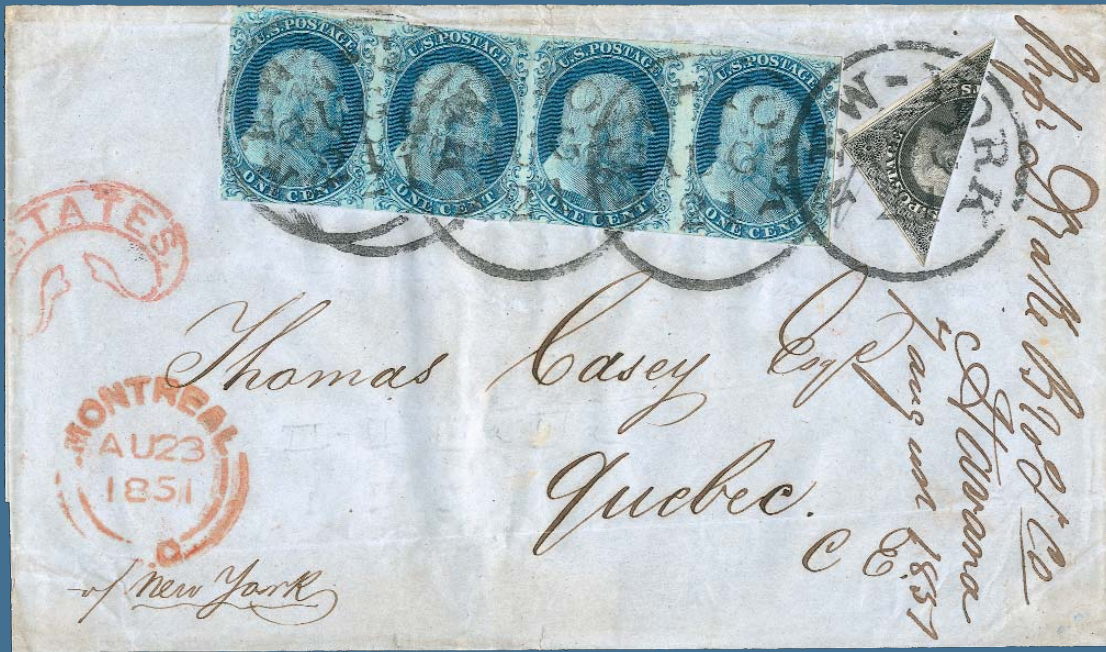 U.S. POSTAGE
ONE CENT
U.S. POSTAGE
ONE CENT
U.S. POSTAGE
ONE CENT
U.S. POSTAGE
ONE CENT
POSTAGE
NEW-YORK
STATES
Thomas Casey Esq
Quebec.
C E.
MONTREAL
AU23
1851
New York
Drake
Havana
1851